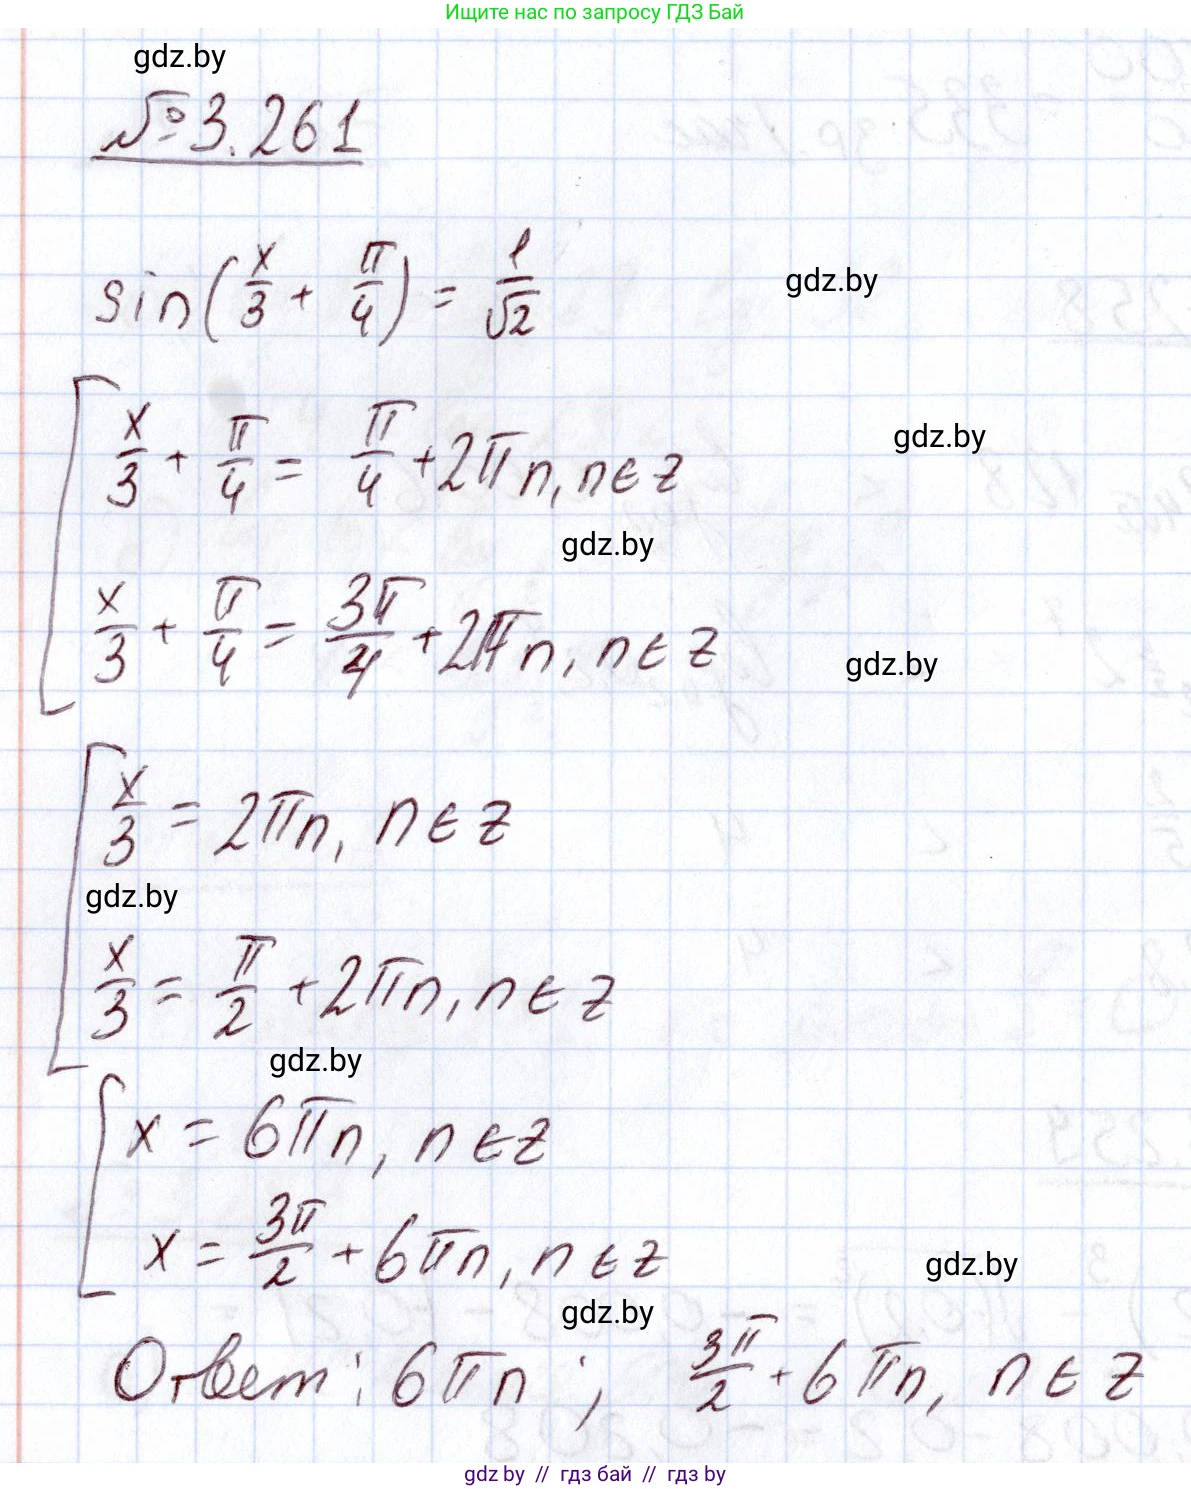 Ищите нас по запросу ГДЗ Бай
gdz.by
№3.261
sin(x/3 + π/4) = 1/√2
gdz.by
x/3 + π/4 = π/4 + 2πn, n∈z
gdz.by
gdz.by
x/3 + π/4 = 3π/4 + 2πn, n∈z
gdz.by
x/3 = 2πn, n∈z
gdz.by
x/3 = π/2 + 2πn, n∈z
gdz.by
x = 6πn, n∈z
x = 3π/2 + 6πn, n∈z
gdz.by
gdz.by
Ответ: 6πn ; 3π/2 + 6πn, n∈z
gdz.by // гдз бай // гдз by